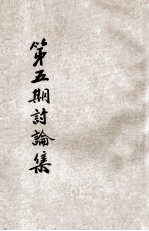 第五期討論集